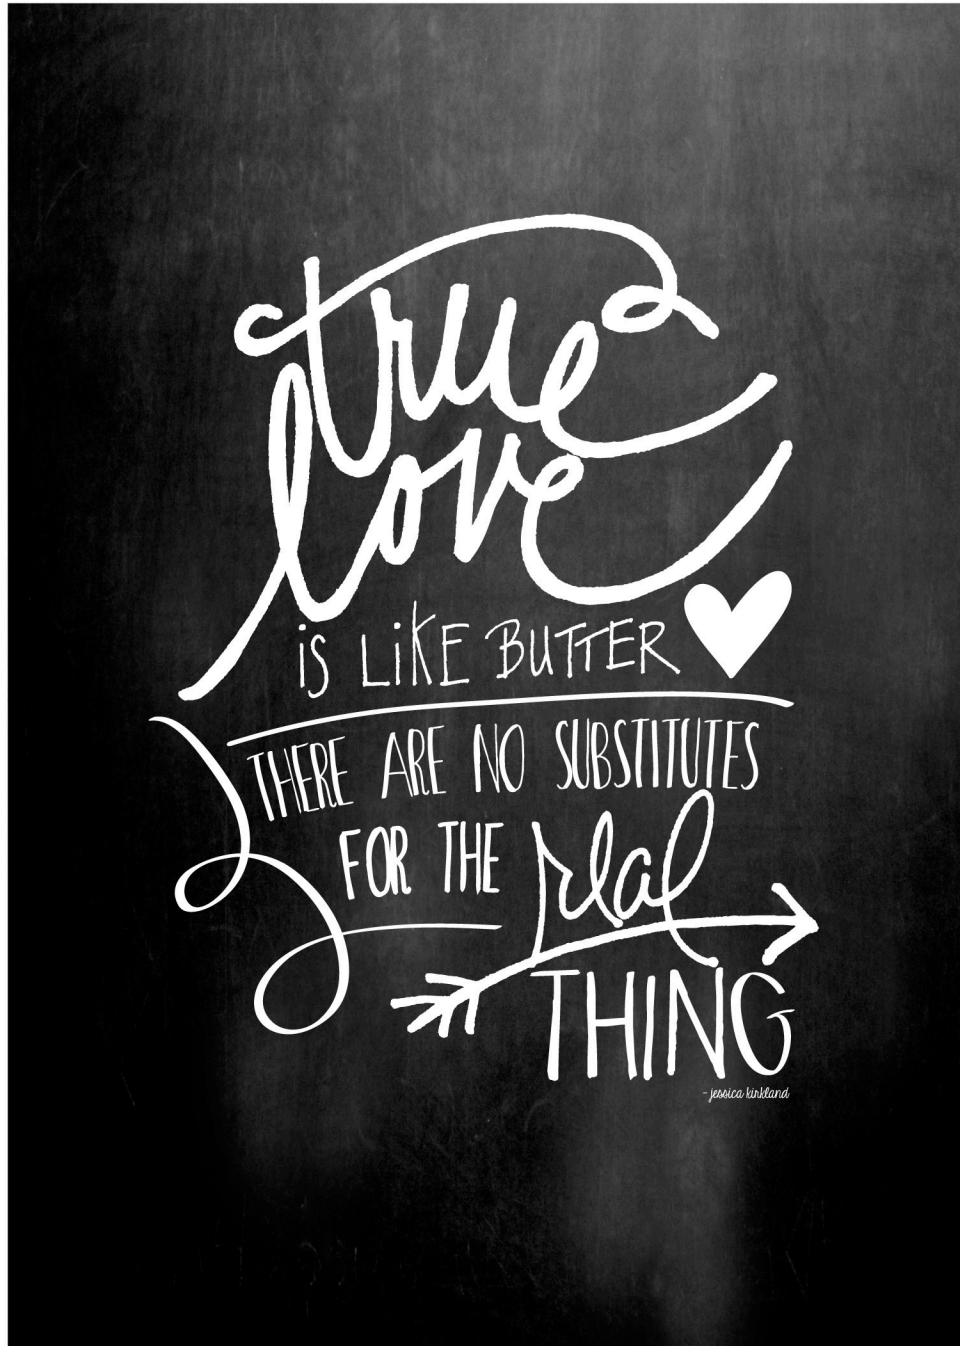 true
love
iS LiKE BUTTER
THERE ARE NO SUBSTITUTES
FOR THE real
THING
- jessica kirkland